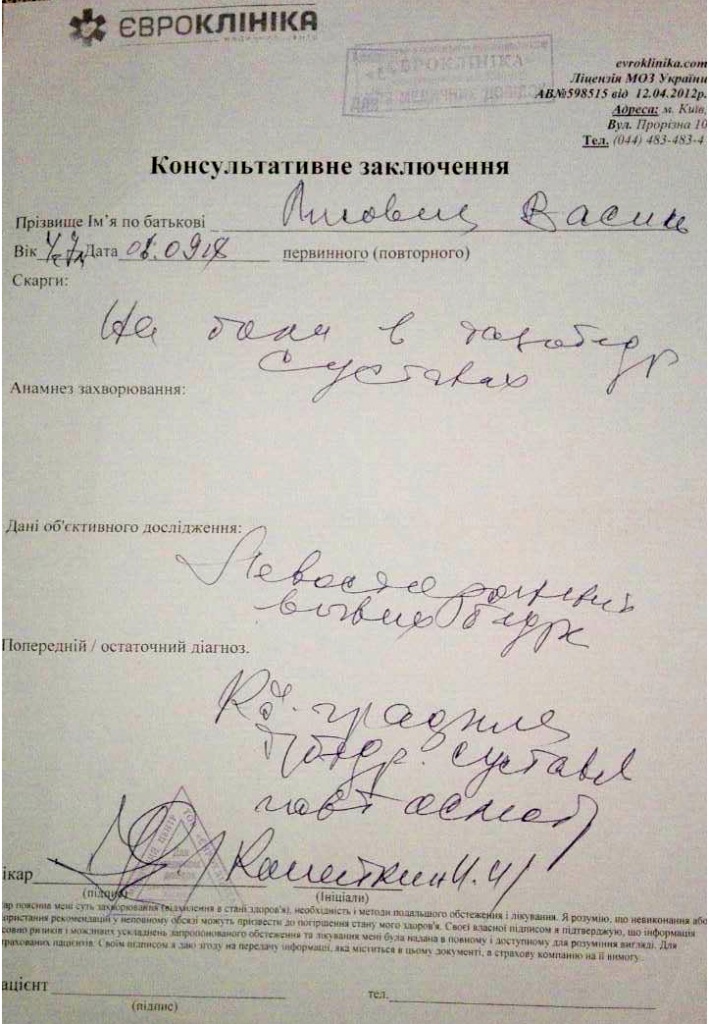 ЄВРОКЛІНІКА
ЄВРОКЛІНІКА
evroklinika.com
Ліцензія МОЗ України
АВ№598515 від 12.04.2012р.
Адреса: м. Київ,
Вул. Прорізна 10
Тел. (044) 483-483-4
Консультативне заключення
Прізвище Ім’я по батькові Васил
Вік Дата первинного (повторного)
Скарги:
На боли в тазобедр
суставах
Анамнез захворювання:
Дані об'єктивного дослідження:
Левосторонний
вывих бедра
Попередній / остаточний діагноз.
сустава
ікар
(підпис) (Ініціали)
ар пояснив мені суть захворювання (відхилення в стані здоров'я), необхідність і методи подальшого обстеження і лікування. Я розумію, що невиконання або
користання рекомендацій у неповному обсязі можуть призвести до погіршення стану мого здоров'я. Своєї власної підписом я підтверджую, що інформація
совно ризиків і можливих ускладнень запропонованого обстеження та лікування мені була надана в повному і доступному для розуміння вигляді. Для
трахованих пацієнтів: Своїм підписом я даю згоду на передачу інформації, яка міститься в цьому документі, в страхову компанію на її вимогу.
ацієнт тел.
(підпис)